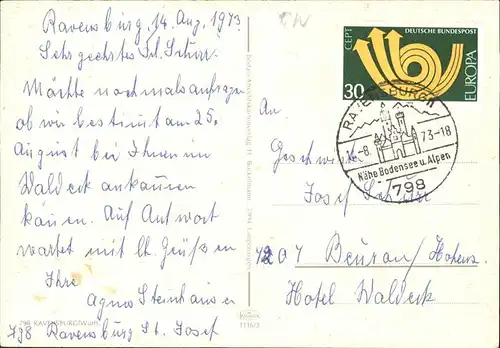 Ravensburg, 14. Aug. 1973
Sehr geehrtes Frl. Schurr
Möchte nochmals anfragen
ob wir bestimmt am 25.
August bei Ihnen im
Waldeck ankommen
können. Auf Antwort
wartet mit lb. Grüßen
Ihre
Agnes Steinhauser
798 RAVENSBURG/Württ.
798 Ravensburg St. Josef
1116/3
DEUTSCHE BUNDESPOST
CEPT
EUROPA
30
RAVENSBURG 1
14.-8. 73-18
Nähe Bodensee u. Alpen
798
An
Geschwister
Josef
7207 Beuron/Hohenz.
Hotel Waldeck